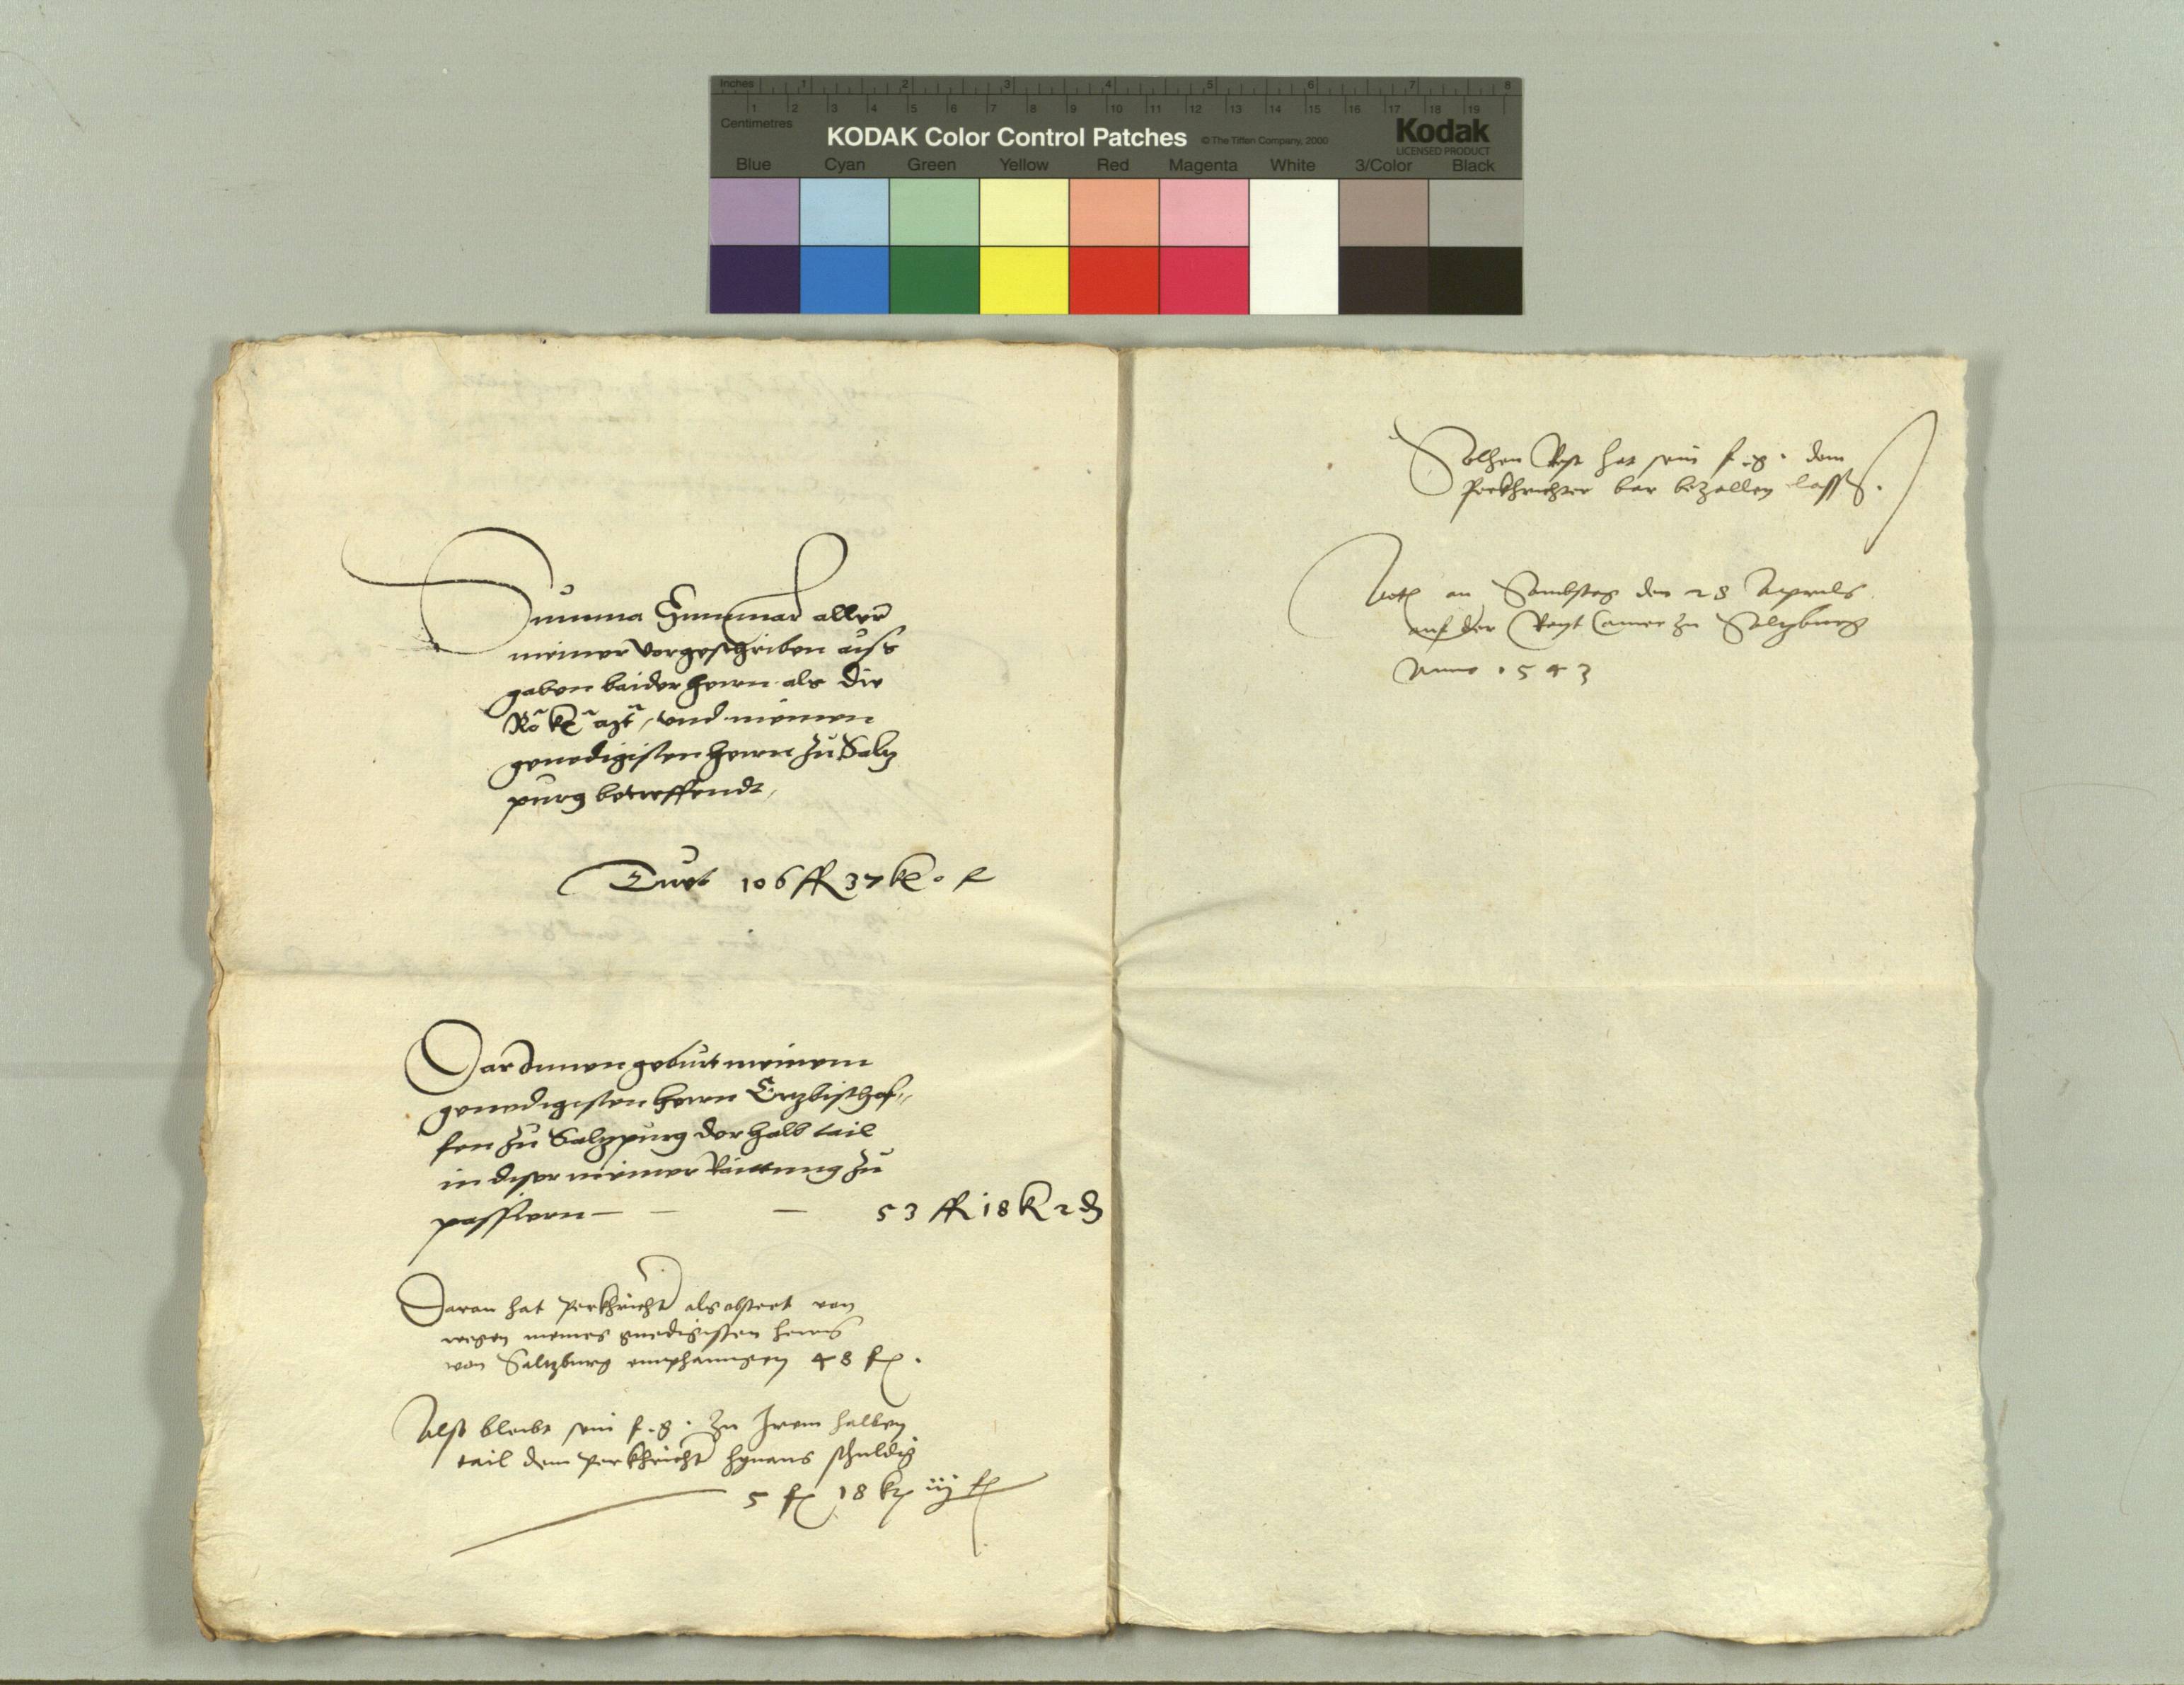 Inches 1 2 3 4 5 6 7 8
1 2 3 4 5 6 7 8 9 10 11 12 13 14 15 16 17 18 19
Centimetres
KODAK Color Control Patches © The Tiffen Company, 2000 Kodak
LICENSED PRODUCT
Blue Cyan Green Yellow Red Magenta White 3/Color Black
Summa Summar aller
meiner vorgeschriben auss
gaben baider herrn als die
Rö kü, und meinen
genedigisten herrn zu Saltz
purg betreffendt,
Tuet 106 fl 37 kr 0 d
Dar Innen geburt meinem
genedigisten herrn Ertzbischof„
fen zu Saltzpurg der halb tail
in diser meiner Raittung zu
passiern — — — 53 fl 18 kr 2 d
Daran hat Perkhricht als obsteet von
wegen meines gnedigisten herrns
von Saltzburg emphanngen 48 fl.
Also bleibt sein f. g. zu Irem halben
tail dem Perkhricht hynaus schuldig
5 fl 18 kr ij d
Solhen Rest hat sein f. g. dem
Perkhrichter bar bezallen lassen.
Act an Sambstag den 28 Aprilis
auf der Rayt Camer zu Saltzburg
Anno 1543